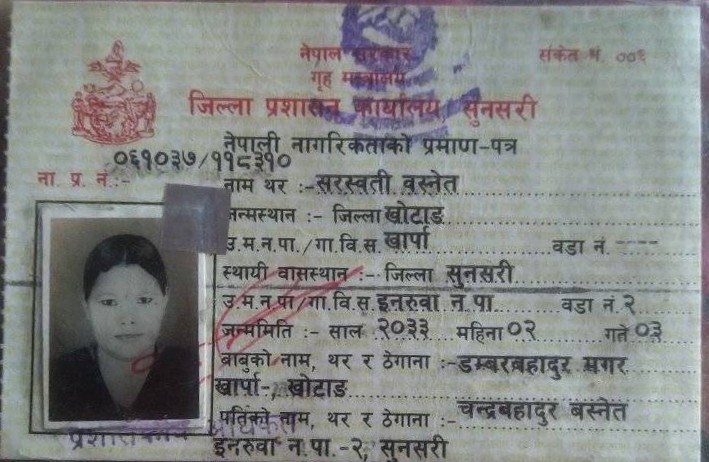 नेपाल सरकार
संकेत नं. ००६
गृह मन्त्रालय
जिल्ला प्रशासन कार्यालय, सुनसरी
नेपाली नागरिकताको प्रमाण-पत्र
०६१०३७/११८३१०
ना. प्र. नं.:-
नाम थर :- सरस्वती वस्नेत
जन्मस्थान :- जिल्ला खोटाङ
उ.म.न.पा./गा.वि.स. खार्पा वडा नं. ----
स्थायी वासस्थान :- जिल्ला सुनसरी
उ.म.न.पा/गा.वि.स इनरुवा न.पा. वडा नं. २
जन्ममिति :- साल २०३३ महिना ०२ गते ०३
बाबुको नाम, थर र ठेगाना :- डम्बरबहादुर मगर
खार्पा-, खोटाङ
पतिको नाम, थर र ठेगाना :- चन्द्रबहादुर बस्नेत
इनरुवा न.पा.-२, सुनसरी